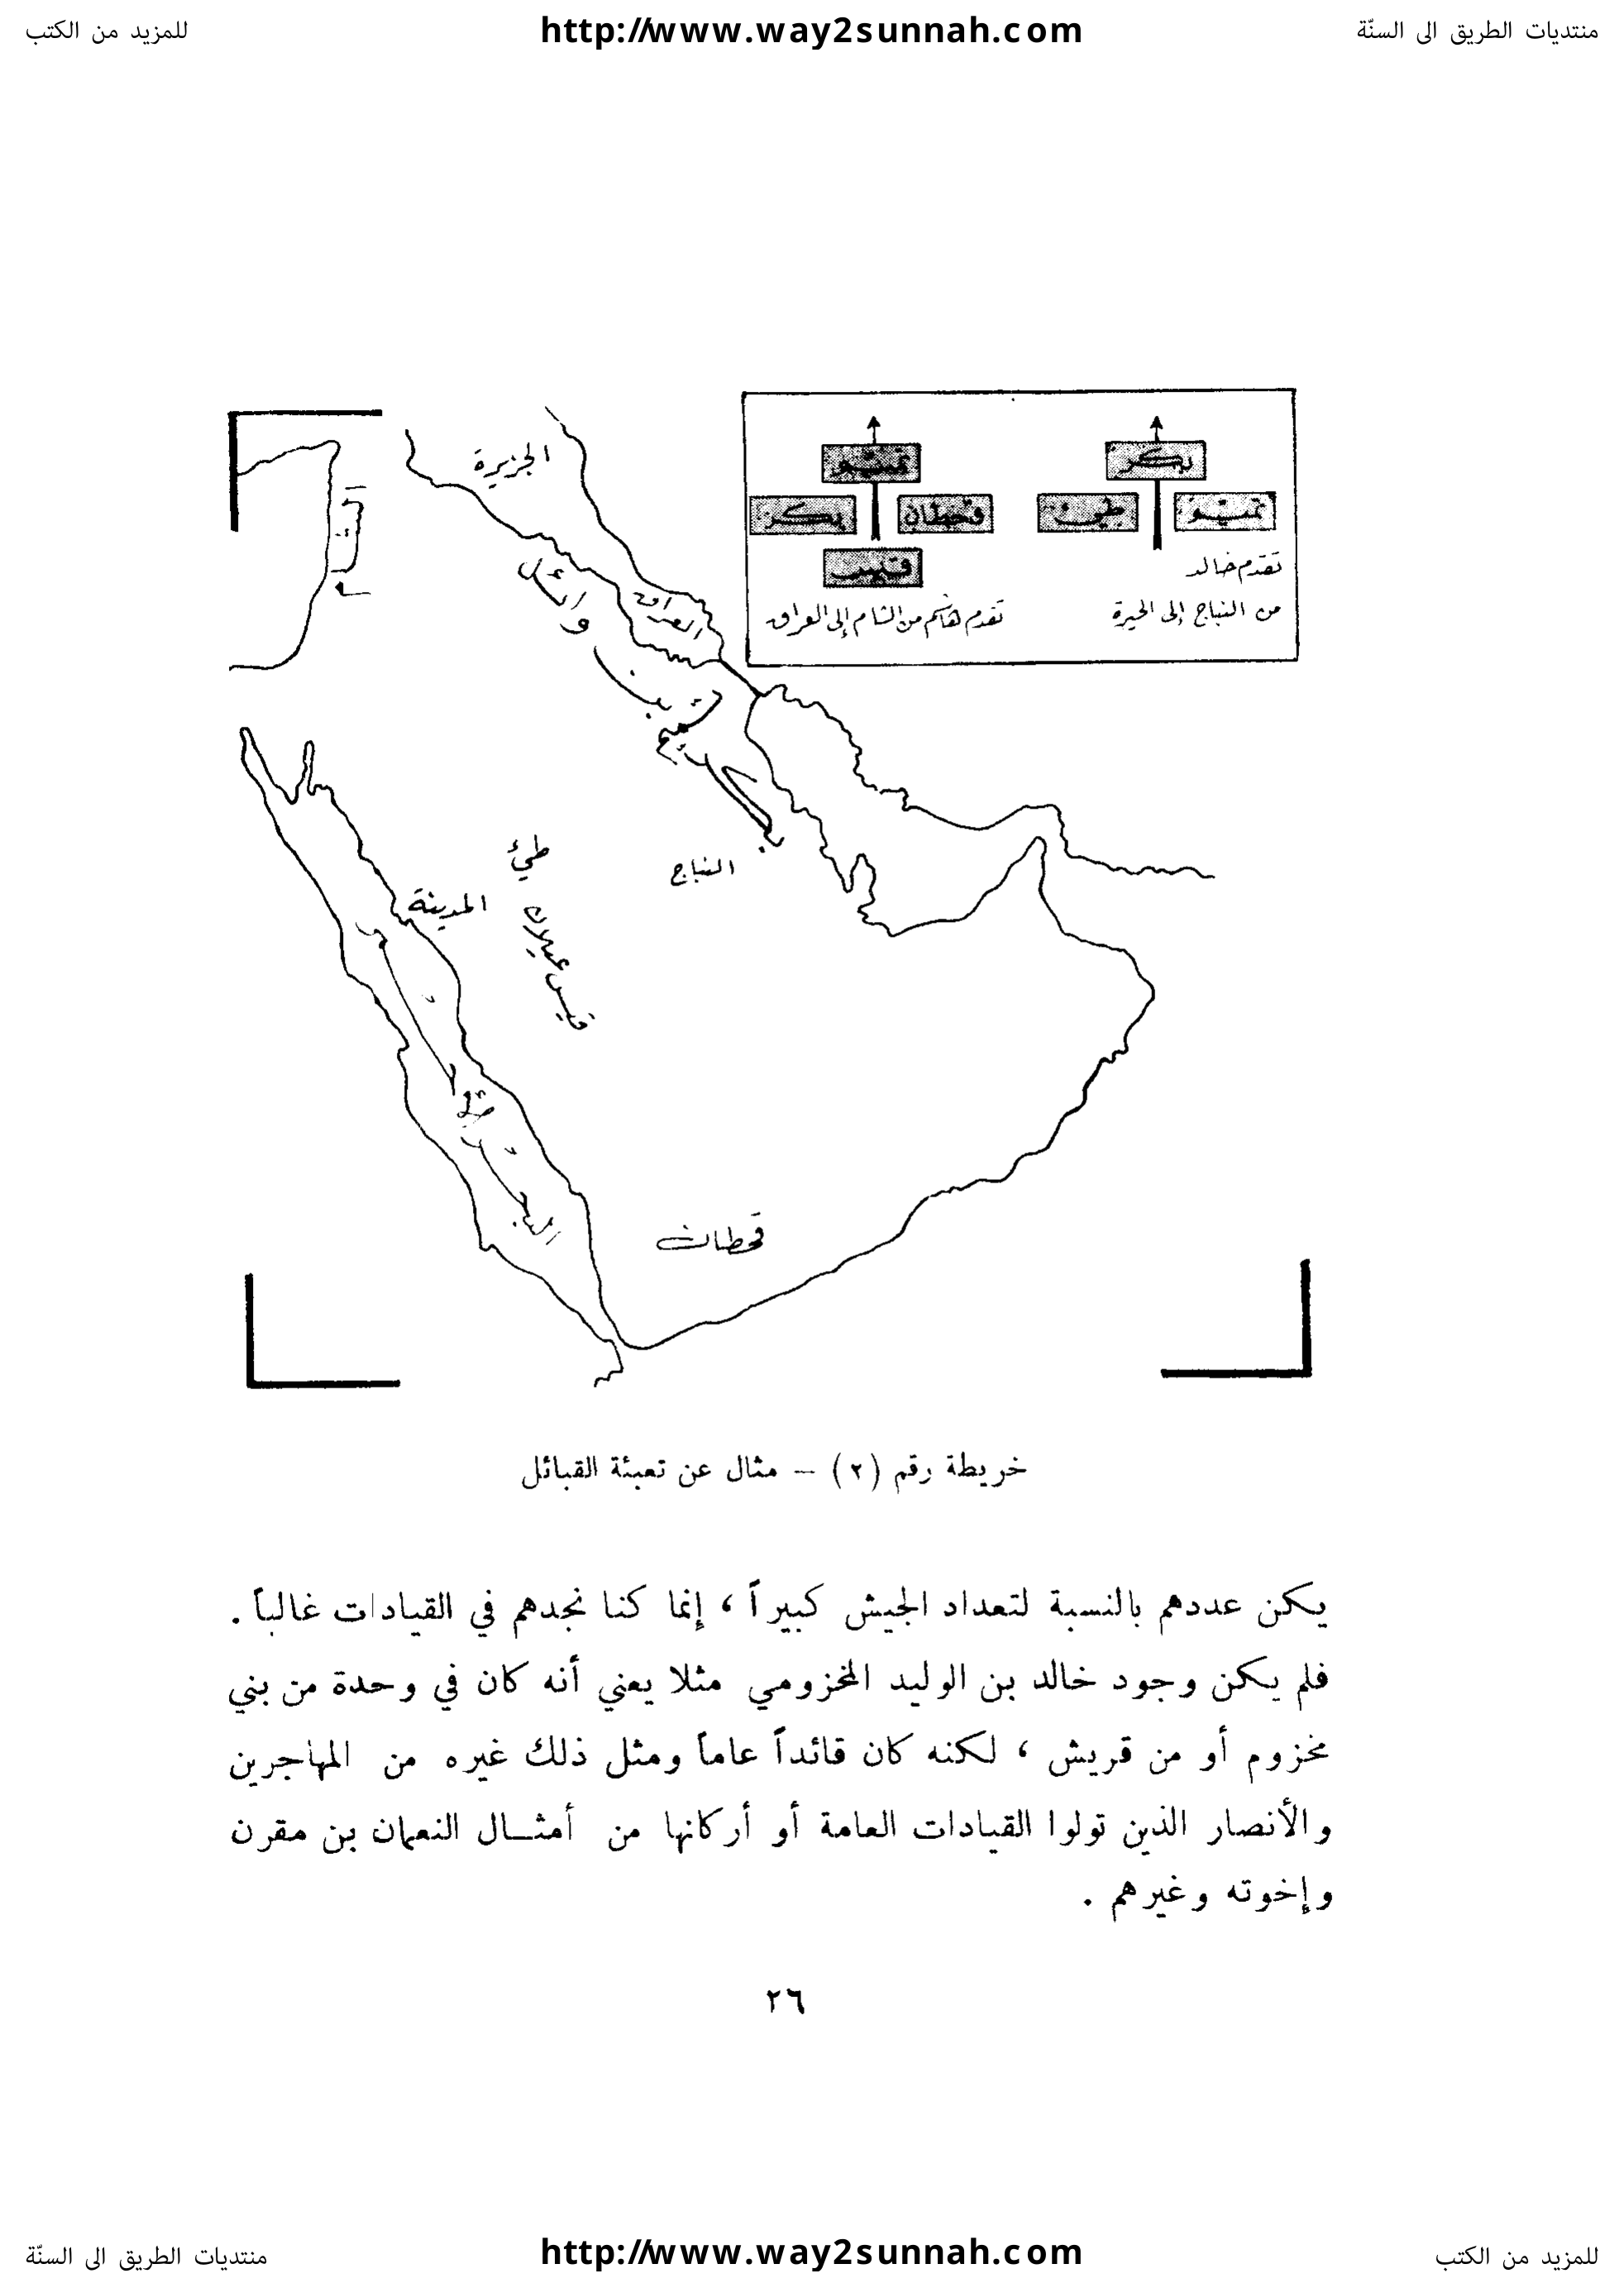 منتديات الطريق الى السنّة
http://www.way2sunnah.com
للمزيد من الكتب
بكر
تميم
طيئ
تقدم خالد
من النباج إلى الحيرة
تميم
قحطان
بكر
قيس
تقدم هاشم من الشام إلى العراق
الجزيرة
الشام
العراق
بكر بن وائل
تميم
طيئ
النباج
المدينة
قيس عيلان
البحر الأحمر
قحطان
خريطة رقم (٢) – مثال عن تعبئة القبائل
يكن عددهم بالنسبة لتعداد الجيش كبيراً ، إنما كنا نجدهم في القيادات غالباً .
فلم يكن وجود خالد بن الوليد المخزومي مثلا يعني أنه كان في وحدة من بني
مخزوم أو من قريش ، لكنه كان قائداً عاماً ومثل ذلك غيره من المهاجرين
والأنصار الذين تولوا القيادات العامة أو أركانها من أمثـال النعمان بن مقرن
وإخوته وغيرهم .
٢٦
للمزيد من الكتب
http://www.way2sunnah.com
منتديات الطريق الى السنّة